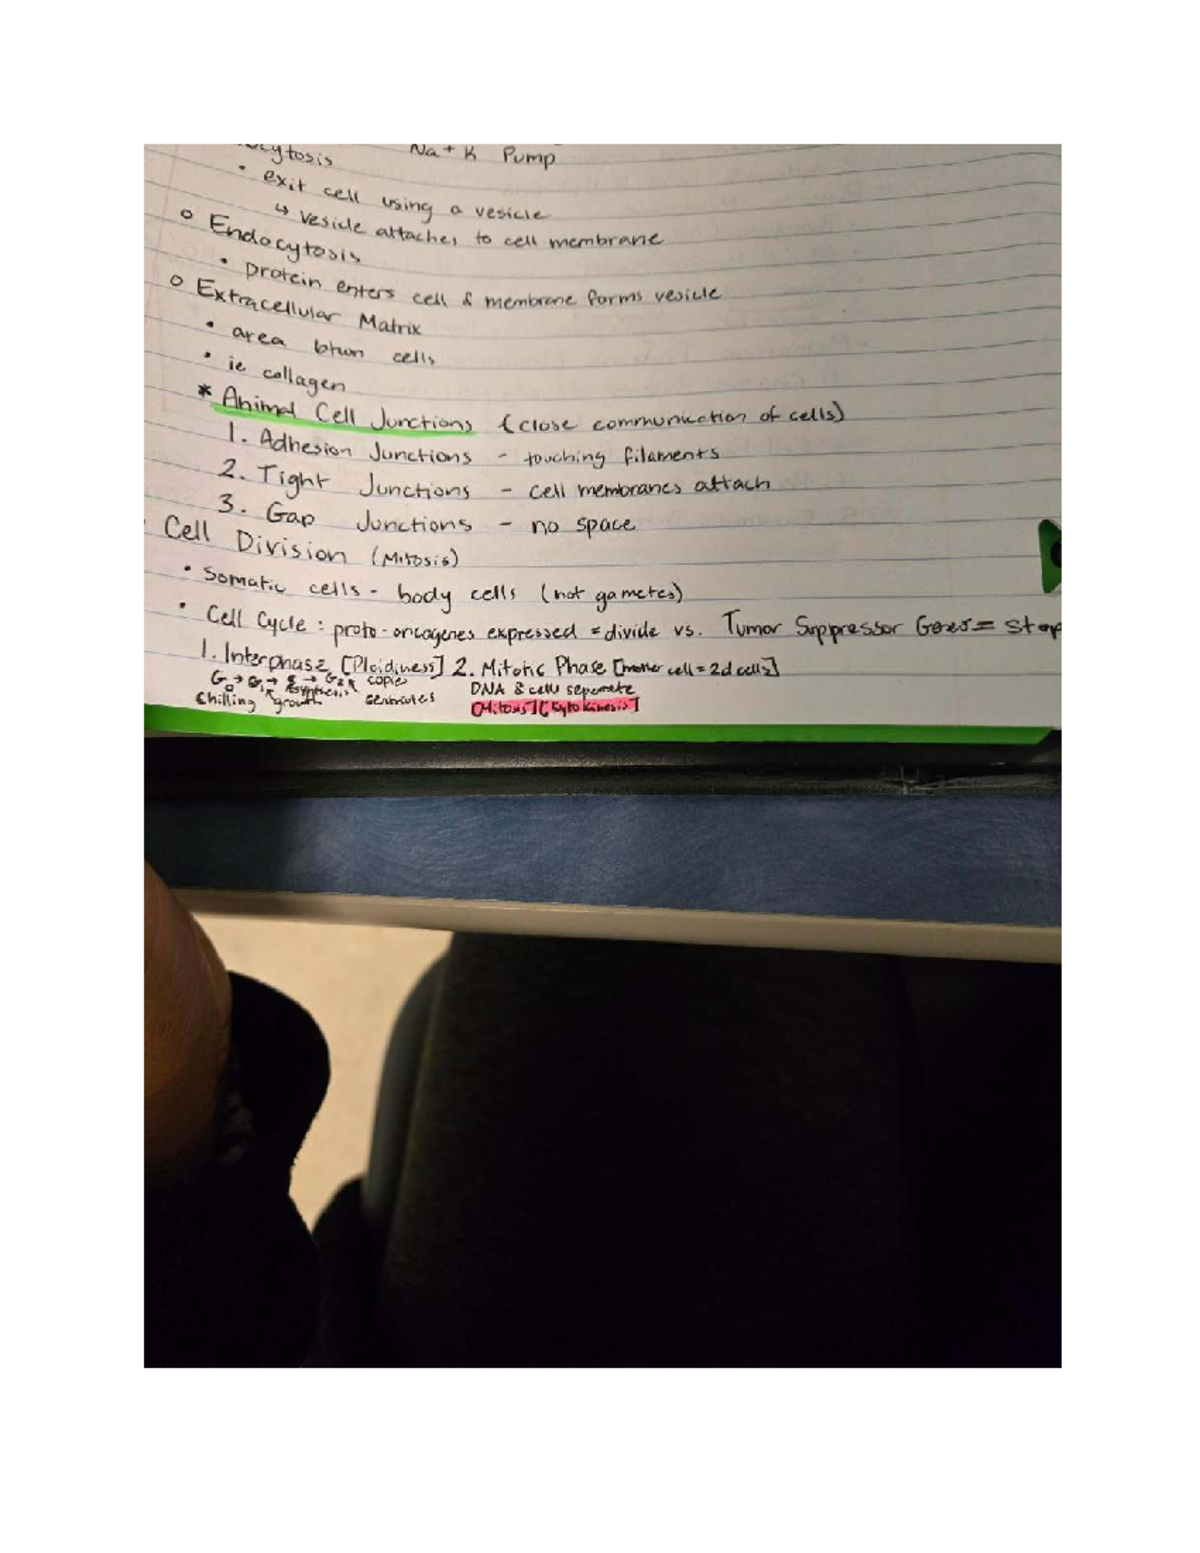 ocytosis Na+ K Pump
• exit cell using a vesicle
↳ vesicle attaches to cell membrane
o Endocytosis
• protein enters cell & membrane forms vesicle
o Extracellular Matrix
• area btwn cells
• ie collagen
* Animal Cell Junctions (close communication of cells)
1. Adhesion Junctions - touching filaments
2. Tight Junctions - cell membranes attach
3. Gap Junctions - no space
Cell Division (Mitosis)
• Somatic cells - body cells (not gametes)
• Cell Cycle : proto-oncogenes expressed = divide vs. Tumor Suppressor Genes = Stop
1. Interphase [Ploidiness] 2. Mitotic Phase [mother cell = 2 d cells]
G0 → G1 → S → G2 copies DNA & cells seperate
chilling growth synthesis centrioles [Mitosis] [Cytokinesis]